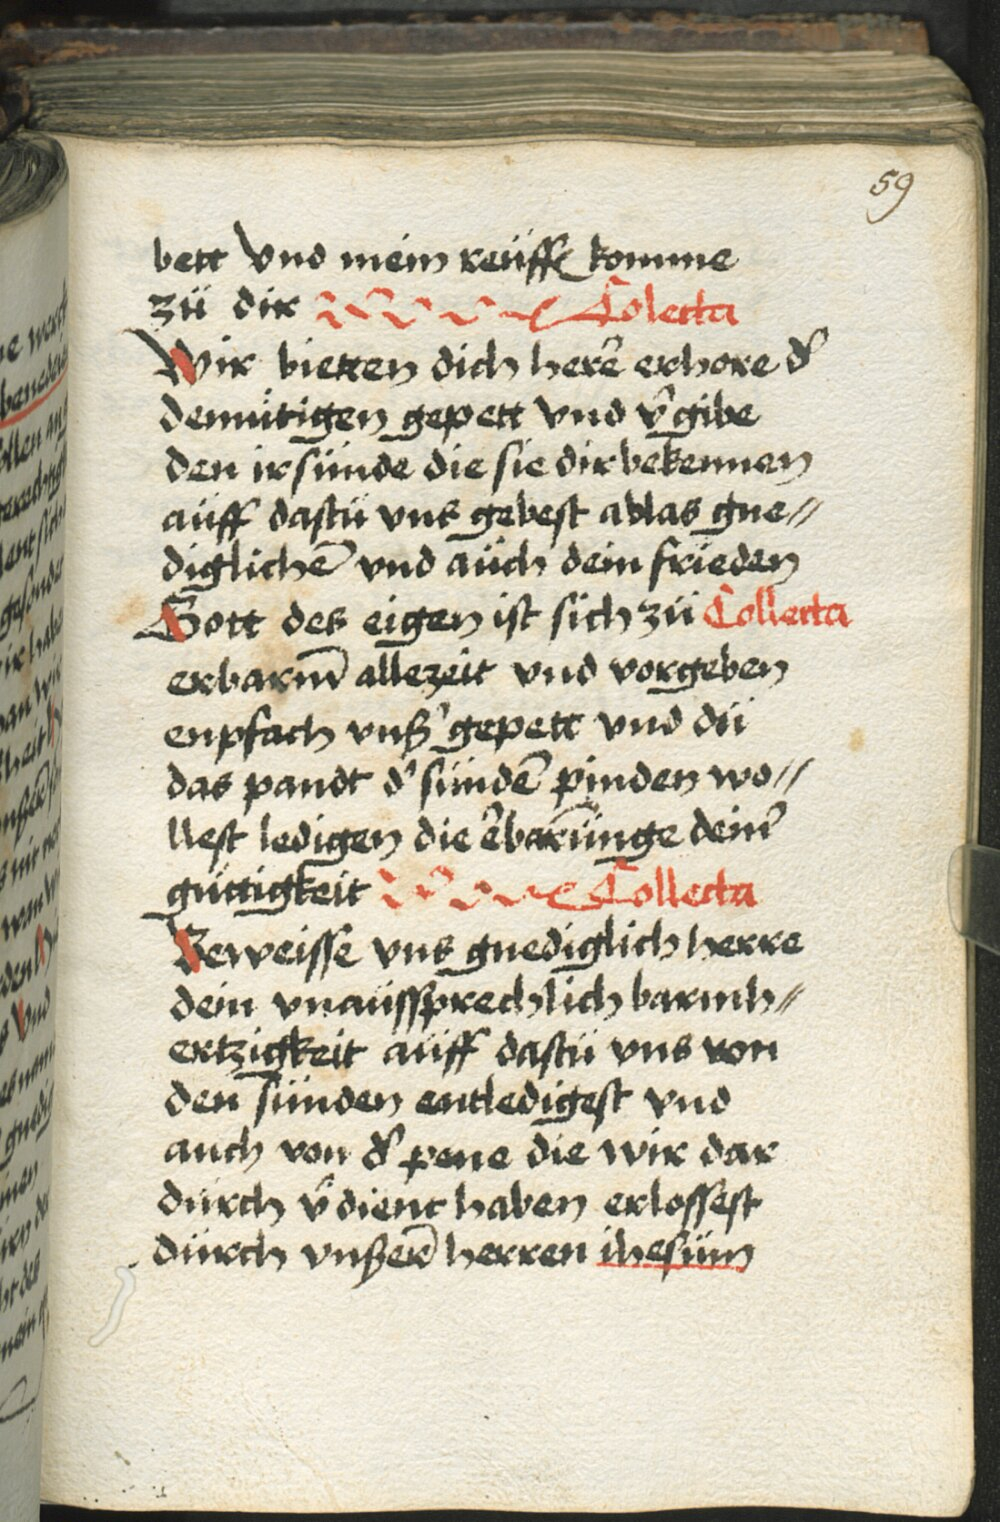 59
bett Vnd mein reüffe komme
zü dir Colecta
Wir bietten dich herē erhore d'
demütigen gepett Vnd v'gibe
den ir sünde die sie dir bekennen
aüff dastü vns gebest ablas gne//
diglichē vnd aüch dein frieden
Gott des eigen ist sich zü Collecta
erbarm̄ allezeit vnd vorgeben
enpfach vnß' gepett vnd dü
das pandt d' sündē pinden wo//
llest ledigen die e'barm̄ünge dein'
güttigkeit Collecta
Beweisse vns gnediglich herre
dein vnaüssprechlich barmh//
ertzigkeit aüff dastü vns von
den sünden entledigest vnd
auch von d' pene die wir dar
dürch v'dient haben erlossest
dürch vnßerē herren ihesüm